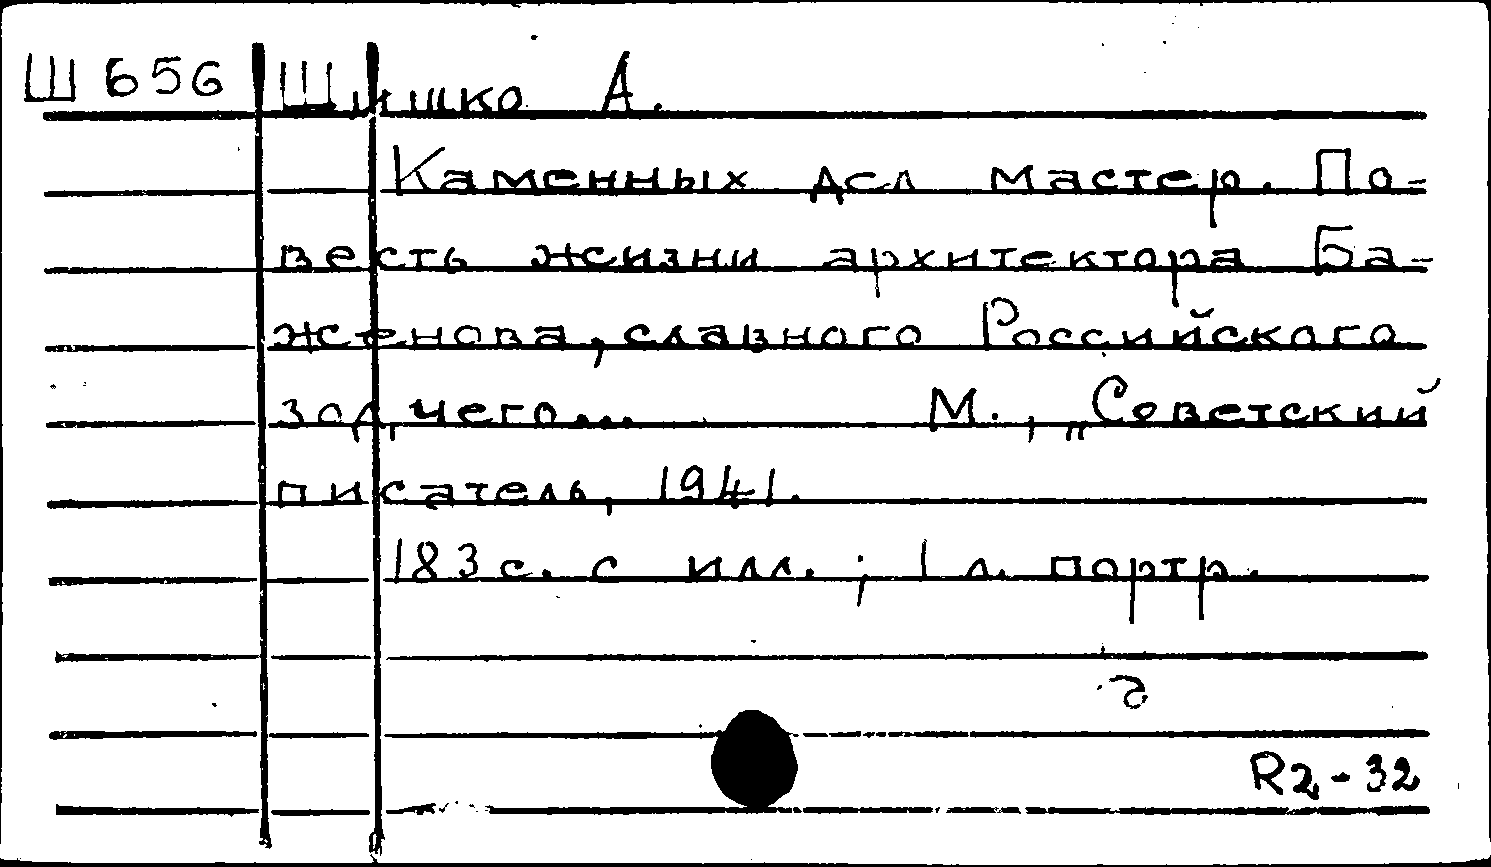 Ш 656 Шишко А.
Каменных дел мастер. По-
весть жизни архитектора Ба-
женова, славного Российского
зодчего... М., „Советский
писатель, 1941.
183 с. с илл.; 1 л. портр.
R2-32